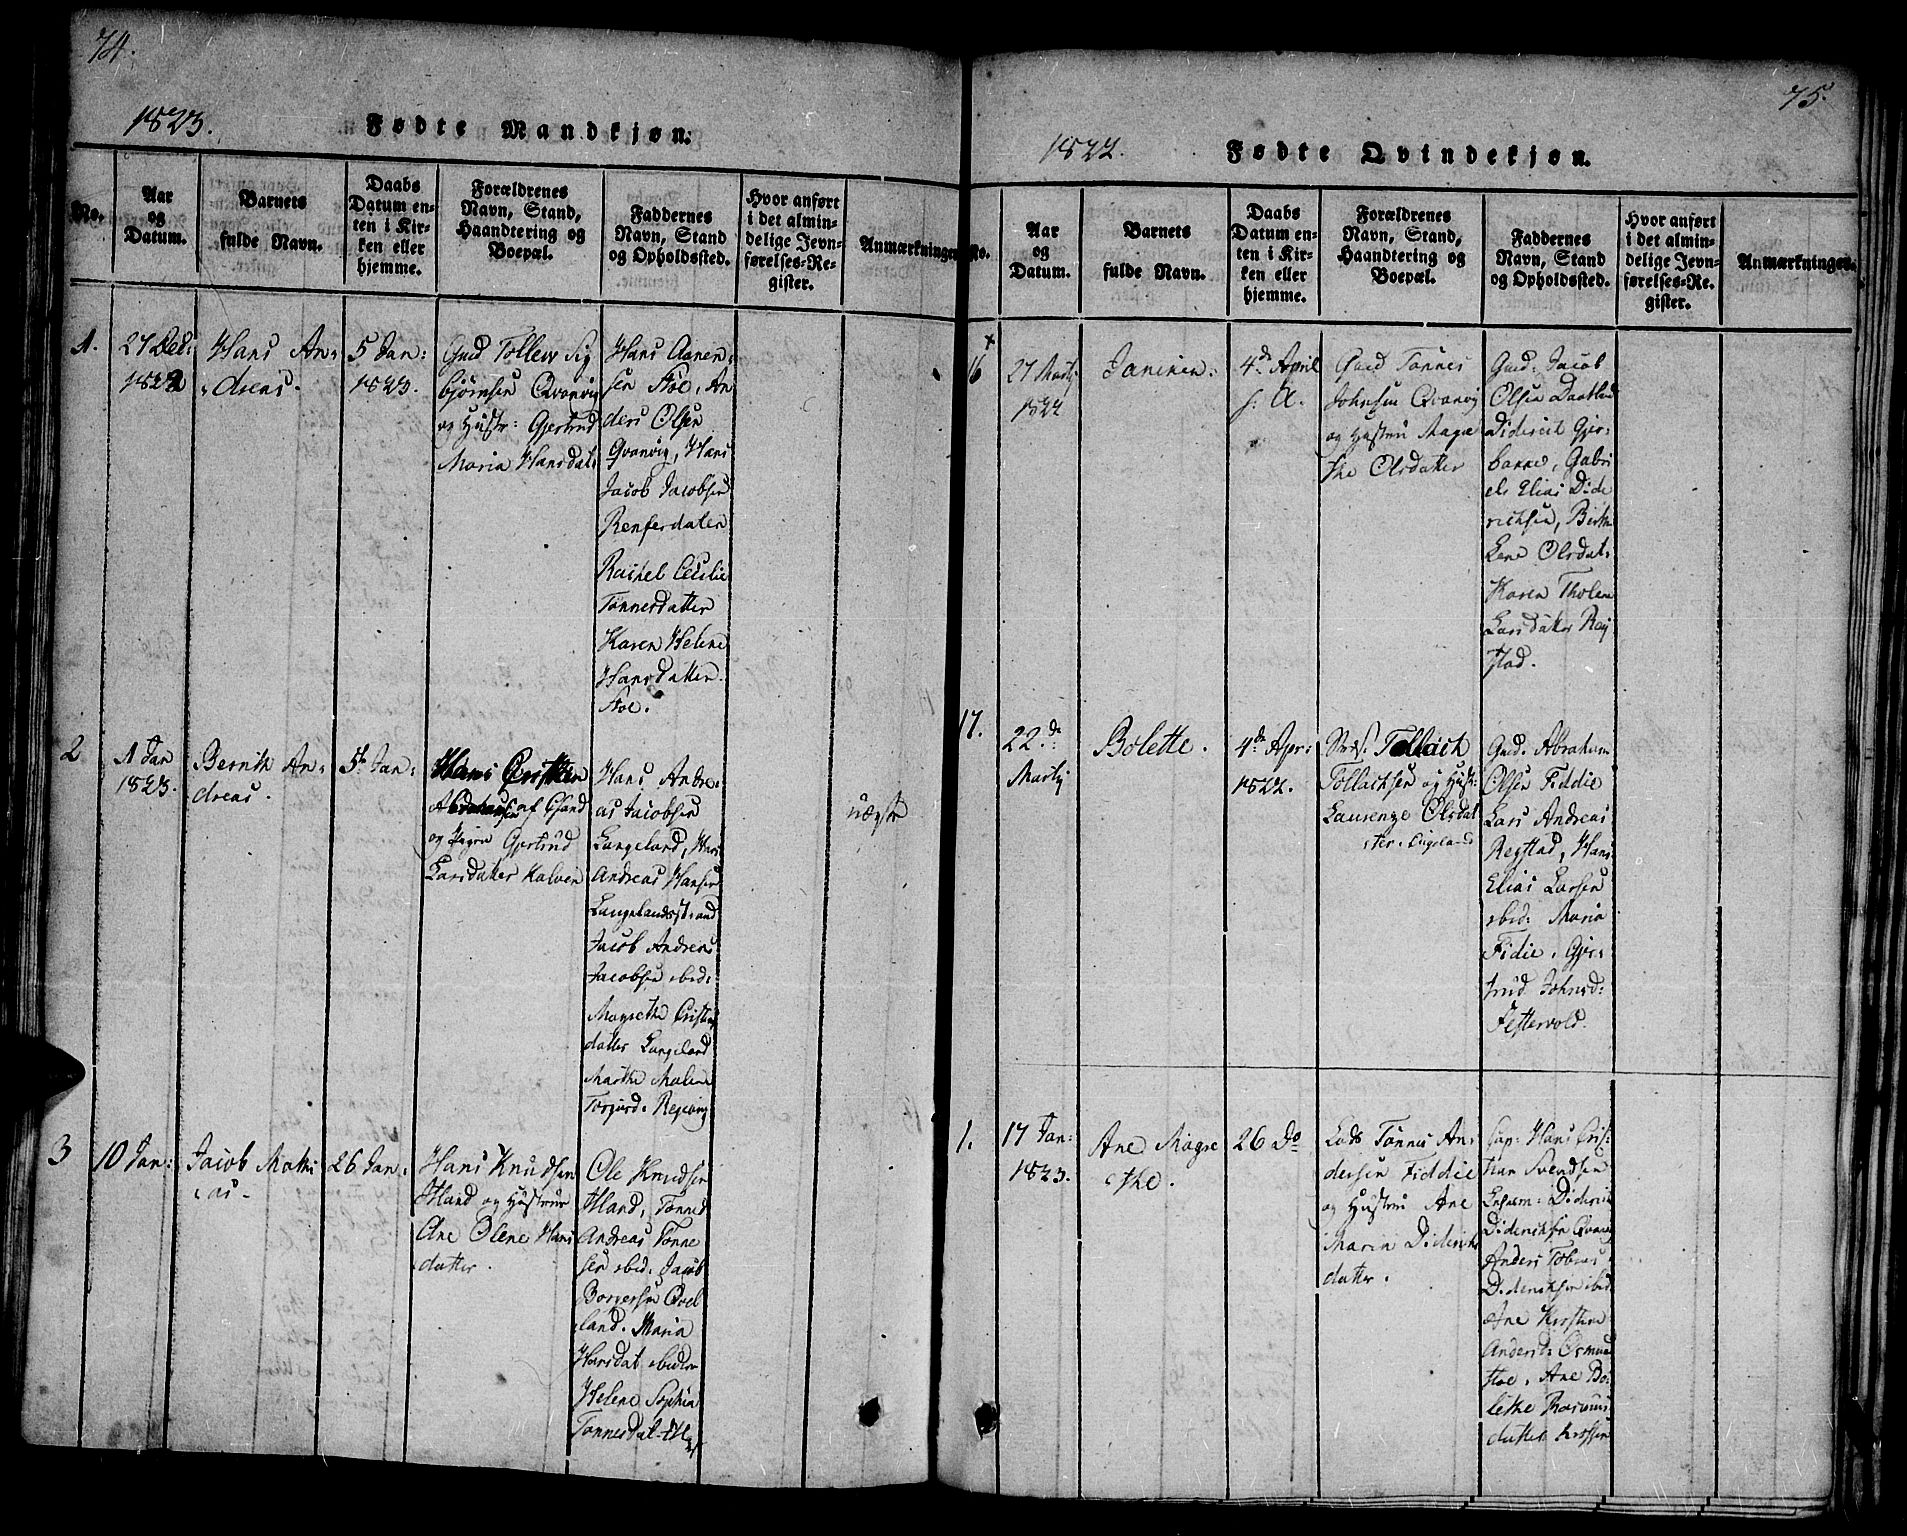 74.
1823.
Fødte Mandkjøn.
No.
Aar
og
Datum.
Barnets
fulde Navn.
Daabs
Datum en-
ten i Kir-
ken eller
hjemme.
Forældrenes
Navn, Stand,
Haandtering og
Boepæl.
Faddernes
Navn, Stand
og Opholdssted.
Hvor anført
i det almin-
delige Jevn-
førelses-Re-
gister.
Anmærkninger
1.
27 Dec:
1822
Hans An-
dreas.
5 Jan:
1823.
Gmd Tollew Sig
bjørnsen Qvanvig
og Hustr: Gjertrud
Maria Hansdat:
Hans Aanen-
sen Stoe, An
ders Olsen
Qvanvig, Hans
Jacob Jacobsen
Renferdalen
Rachel Cecilie
Tønnesdatter
Karen Helene
Hansdatter
Stoe.
2
1 Jan
1823.
Bernth An-
dreas.
5te Jan:
Hans Cristian
Abrahamsen af
og Pigen Gjertrud
Larsdatter Kalven
Hans Andre-
as Jacobsen
Langeland, Hans
Andreas Hansen
Langelandsstrand
Jacob Andreas
Jacobsen ibid:
Magrethe Crist
datter Langeland
Marthe Malene
Torjusd: Regevig
uægte
3
10 Jan:
Jacob Mathi
as.
26 Jan:
Hans Knudsen
Hland og Hustrue
Ane Olene Hans
datter.
Ole Knudsen
Hland, Tønnes
Andreas Tønne
sen ibid: Jacob
Borresen Qvel
land. Maria
Hansdat ibidem
Helene Sophia
Tønnesdat
75.
1822.
Fødte Qvindekjøn.
No.
Aar
og
Datum.
Barnets
fulde Navn.
Daabs
Datum en-
ten i Kir-
ken eller
hjemme.
Forældrenes
Navn, Stand,
Haandtering og
Boepæl.
Faddernes
Navn, Stand
og Opholdssted.
Hvor anført
i det almin-
delige Jevn-
førelses-Re-
gister.
Anmærkninger.
16
27 Martj
1822
Janiken:
4de April
s: A.
Gmd Tønnes
Johnsen Qvanvig
og Hustru Magre
the Olsdatter
Gmd: Jacob
Olsen Daatland
Diderich Gjer-
, Gabri
els Elias Dide
richsen, Birthe
Lene Olsdat:
Karen Tholene
Larsdatter Reg
stad.
17.
22de
Martij
Bolette.
4de Apr:
1822.
Tollach
Tollachsen og Hust:
Laurenze Olsdat
ter. Eigeland
Gmd. Abraham
Olsen Fiddie
Lars Andreas
Regstad, Hans
Elias Larsen
ibid: Maria
Fidie. Gjer-
trud Johnsd:
Festervold.
1.
17 Jan:
1823.
Ane Magre
the.
26 Do
Lods Tønnes An-
dersen Fiddie
og Hustru Ane
Maria Diderichs
datter.
Cap: Hans Cris-
tian Svendsen
Diderich
Diderichsen Qvanvig
Anders Tobias
Didericksen ibid.
Ane Kirstine
Andersd:
Stoe. Ane Bo-
lethe Rasmus
datter